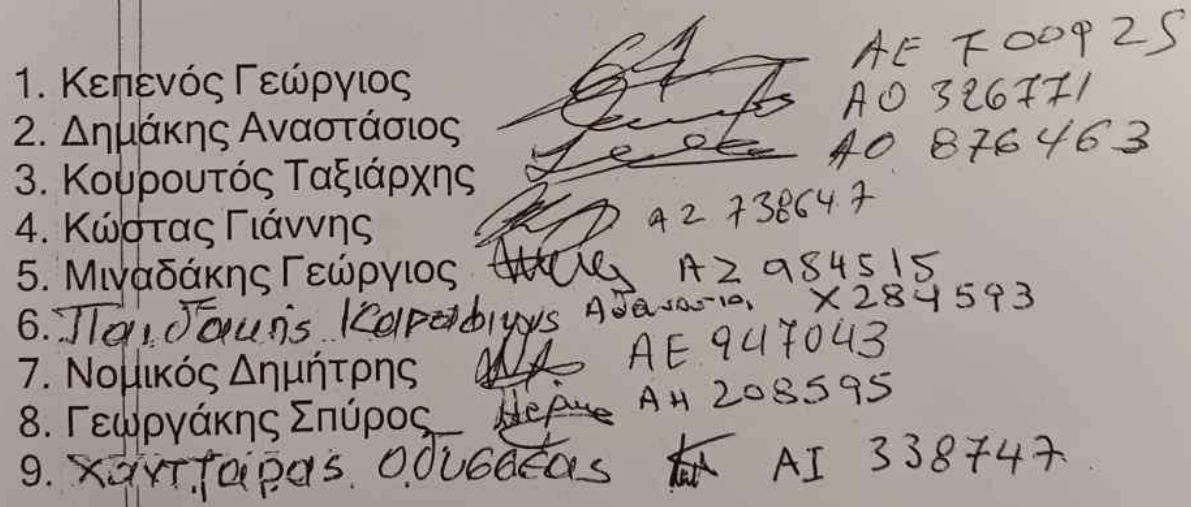 1. Κεπενός Γεώργιος ΑΕ 700925
2. Δημάκης Αναστάσιος ΑΟ 326771
3. Κουρουτός Ταξιάρχης ΑΟ 876463
4. Κώστας Γιάννης ΑΖ 738647
5. Μιναδάκης Γεώργιος ΑΖ 984515
6. Παιδακης Αθανασιος Χ284593
7. Νομικός Δημήτρης ΑΕ 947043
8. Γεωργάκης Σπύρος ΑΗ 208595
9. Χαντταρας Οδυσσέας ΑΙ 338747